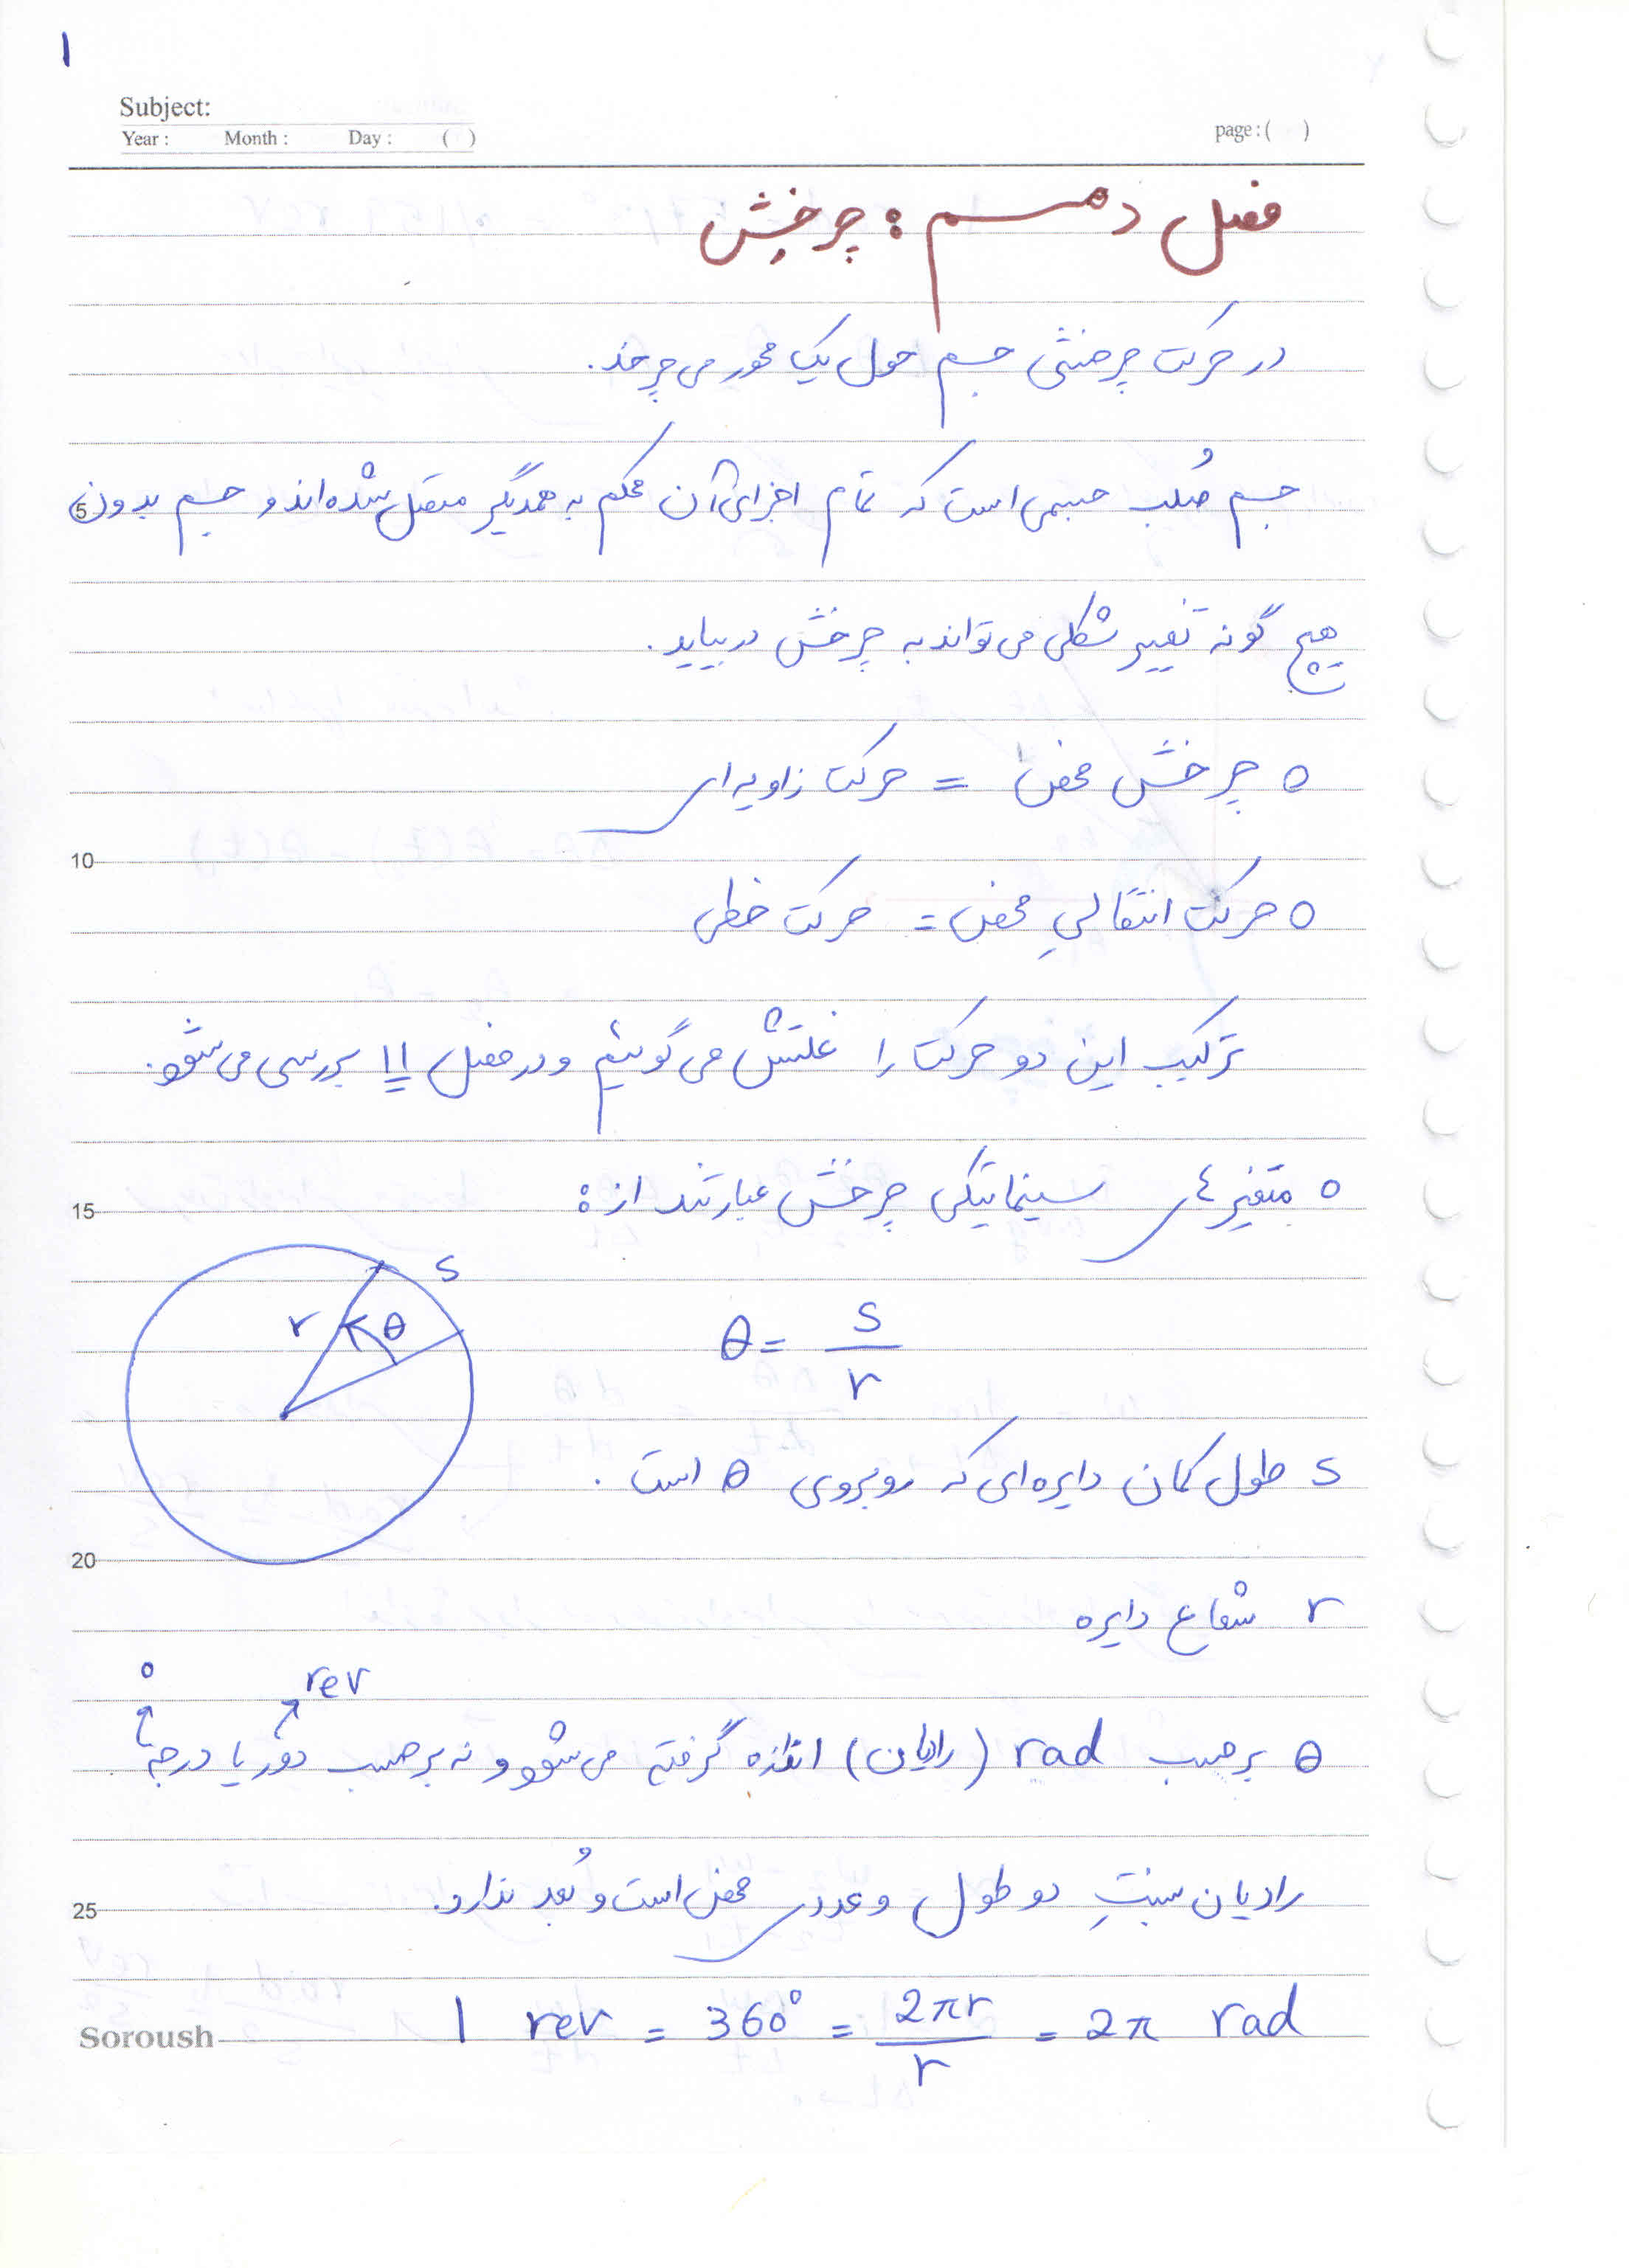 ۱
Subject:
Year : Month : Day : ( )
page : ( )
فصل دهم : چرخش
در حرکت چرخشی جسم حول یک محور می چرخد.
جسم صُلب جسمی است که تمام اجزای آن محکم به همدیگر متصل شده اند و جسم بدون
5
هیچ گونه تغییر شکلی می تواند به چرخش دربیاید.
o چرخش محض = حرکت زاویه ای
10
o حرکت انتقالیِ محض = حرکت خطی
ترکیب این دو حرکت را غلتش می گوییم و در فصل ۱۱ بررسی می شود.
o متغیرهای سینماتیکی چرخش عبارتند از :
15
s
r θ
θ = s/r
s طول کمان دایره ای که روبروی θ است.
20
r شعاع دایره
rev
°
θ برحسب rad (رادیان) اندازه گرفته می شود و نه برحسب دور یا درجه
رادیان نسبتِ دو طول و عددی محض است و بُعد ندارد.
25
1 rev = 360° = 2πr/r = 2π rad
Soroush